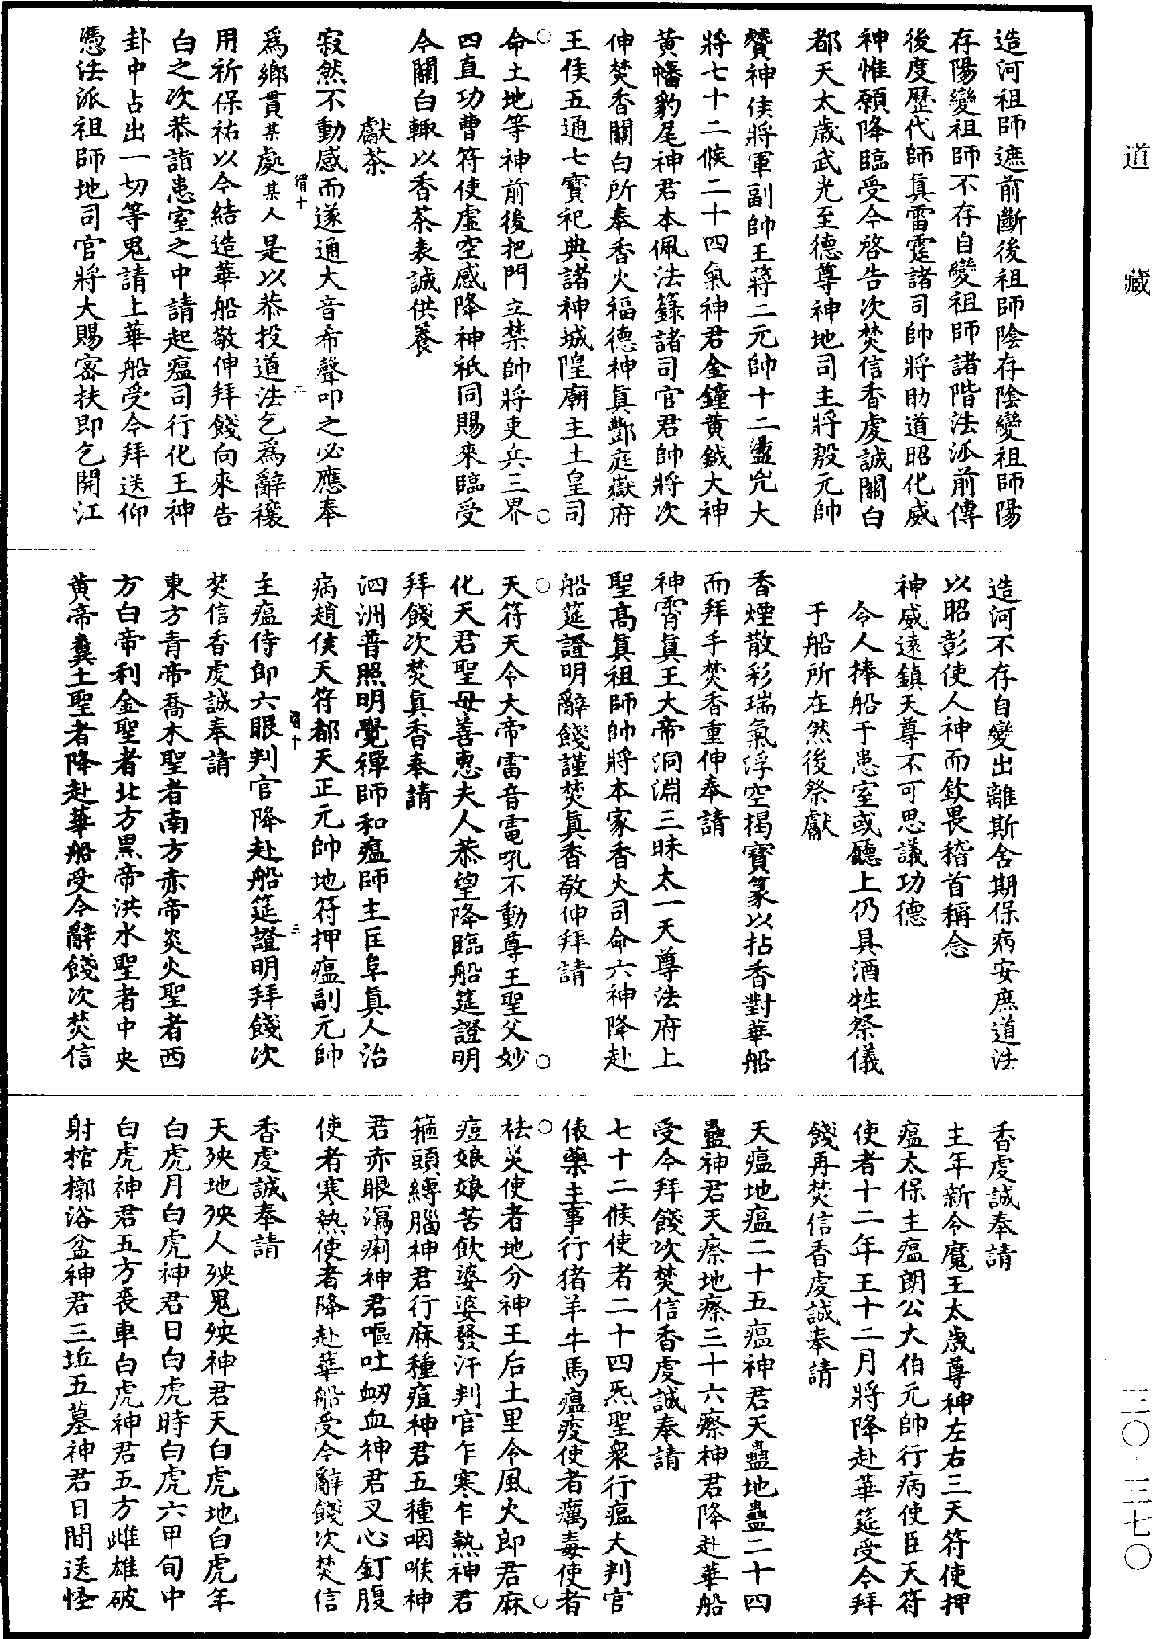 造河祖師遮前斷後祖師陰存陰變祖師陽
存陽變祖師不存自變祖師諸階法派前傳
後度歷代師真雷霆諸司帥將助道昭化威
神惟願降臨受今啓告次焚信香虔誠關白
都天太歲武光至德尊神地司主將殷元帥
贊神侯將軍副帥王蔣二元帥十二盪兇大
將七十二候二十四氣神君金鐘黃鉞大神
黃幡豹尾神君本佩法籙諸司官君帥將次
伸焚香關白所奉香火福德神真酆庭嶽府
王侯五通七寶祀典諸神城隍廟主土皇司
命土地等神前後把門立禁帥將吏兵三界
四直功曹符使虛空感降神祇同賜來臨受
今關白輙以香茶表誠供養
獻茶
寂然不動感而遂通大音希聲叩之必應奉
為鄉貫某處某人是以恭投道法乞為辭禳
用祈保祐以今結造華船敬伸拜餞向來告
白之次恭詣患室之中請起瘟司行化王神
卦中占出一切等鬼請上華船受今拜送仰
憑法派祖師地司官將大賜密扶即乞開江
造河不存自變出離斯舍期保病安庶道法
以昭彰使人神而欽畏稽首稱念
神威遠鎮天尊不可思議功德
令人捧船于患室或廳上仍具酒牲祭儀
于船所在然後祭獻
香煙散彩瑞氣浮空揭寶篆以拈香對華船
而拜手焚香重伸奉請
神霄真王大帝洞淵三昧太一天尊法府上
聖高真祖師帥將本家香火司命六神降赴
船筵證明辭餞謹焚真香敬伸拜請
天符天令大帝雷音電吼不動尊王聖父妙
化天君聖母善惠夫人恭望降臨船筵證明
拜餞次焚真香奉請
泗洲普照明覺禪師和瘟師主匡阜真人治
病趙侯天符都天正元帥地符押瘟副元帥
主瘟侍郎六眼判官降赴船筵證明拜餞次
焚信香虔誠奉請
東方青帝喬木聖者南方赤帝炎火聖者西
方白帝利金聖者北方黑帝洪水聖者中央
黃帝糞土聖者降赴華船受今辭餞次焚信
香虔誠奉請
主年新令魔王太歲尊神左右三天符使押
瘟太保主瘟朗公大伯元帥行病使臣天符
使者十二年王十二月將降赴華筵受今拜
餞再焚信香虔誠奉請
天瘟地瘟二十五瘟神君天蠱地蠱二十四
蠱神君天瘵地瘵三十六瘵神君降赴華船
受今拜餞次焚信香虔誠奉請
七十二候使者二十四炁聖衆行瘟大判官
俵藥主事行猪羊牛馬瘟疫使者癘毒使者
祛災使者地分神王后土里令風火郎君麻
痘娘娘苦飲婆婆發汗判官乍寒乍熱神君
箍頭縛腦神君行麻種痘神君五種咽喉神
君赤眼瀉痢神君嘔吐衂血神君叉心釘腹
使者寒熱使者降赴華船受今辭餞次焚信
香虔誠奉請
天殃地殃人殃鬼殃神君天白虎地白虎年
白虎月白虎神君日白虎時白虎六甲旬中
白虎神君五方喪車白虎神君五方雌雄破
射棺槨浴盆神君三坵五墓神君日間送怪
道藏
三〇·三七〇